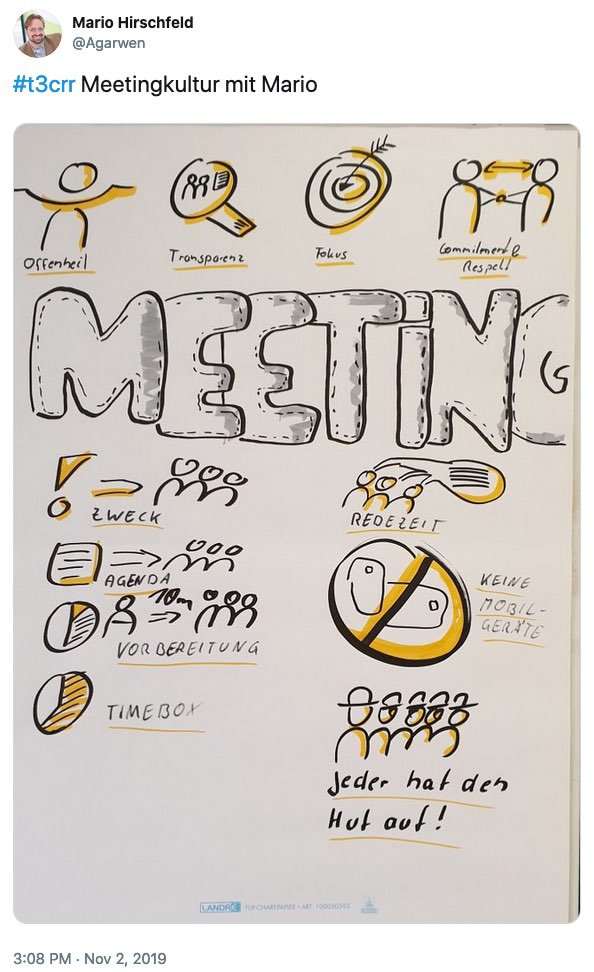 Mario Hirschfeld
@Agarwen
#t3crr Meetingkultur mit Mario
Offenheit
Transparenz
Fokus
Commitment &
Respekt
MEETiNG
ZWECK
REDEZEIT
AGENDA
10m
VORBEREITUNG
KEINE
MOBIL-
GERÄTE
TIMEBOX
Jeder hat den
Hut auf!
LANDRÉ FLIP-CHART-PAPIER • ART. 100050593
3:08 PM · Nov 2, 2019